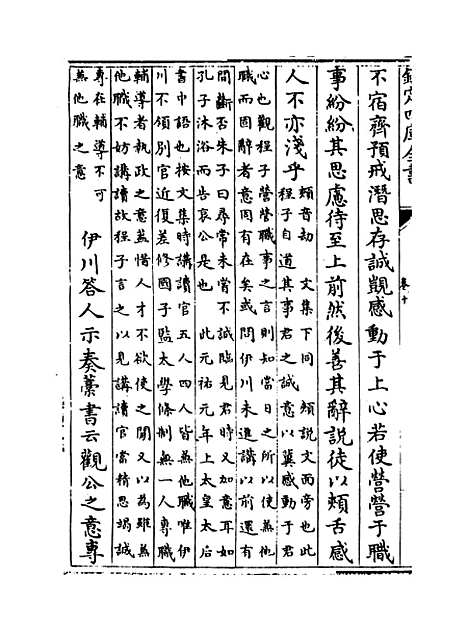 欽定四庫全書
卷十
不宿齊預戒潛思存誠覬感動于上心若使營營于職
事紛紛其思慮待至上前然後善其辭說徒以頰舌感
人不亦淺乎
頰音劫 文集下同 頰說文面旁也此
程子自道其事君之誠意以冀感動于君
心也觀程子營營職事之言則知當日之所以使兼他
職而固辭者意固有在矣或問伊川未進講以前還有
間斷否朱子曰尋常未嘗不誠臨見君時又加意耳如
孔子沐浴而告哀公是也 此元祐元年上太皇太后
書中語也按文集時講讀官五人四人皆兼他職唯伊
川不領別官近復差修國子監太學條制無一人專職
輔導者執政之意蓋惜人才不欲使之閒又以為雖兼
他職不妨講讀故程子言之以見講讀官當精思竭誠
專在輔導不可
兼他職之意
伊川答人示奏藁書云觀公之意專